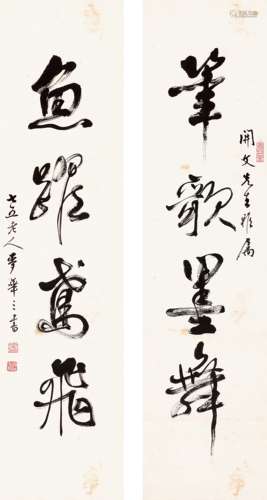 開文先生雅屬
筆歌墨舞
魚躍鳶飛
七五老人麥華三書